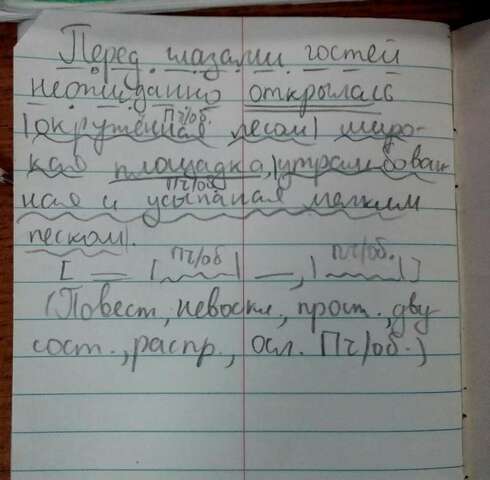 Перед глазами гостей
неожиданно открылась
Пч/об.
|окружённая лесом| широ-
кая площадка,|утрамбован-
Пч/об
ная и усыпаная мелким
песком|.
Пч/об Пч/об.
[ = | | —, | |]
(Повест, невоскл, прост., дву
сост., распр., осл. Пч/об.)